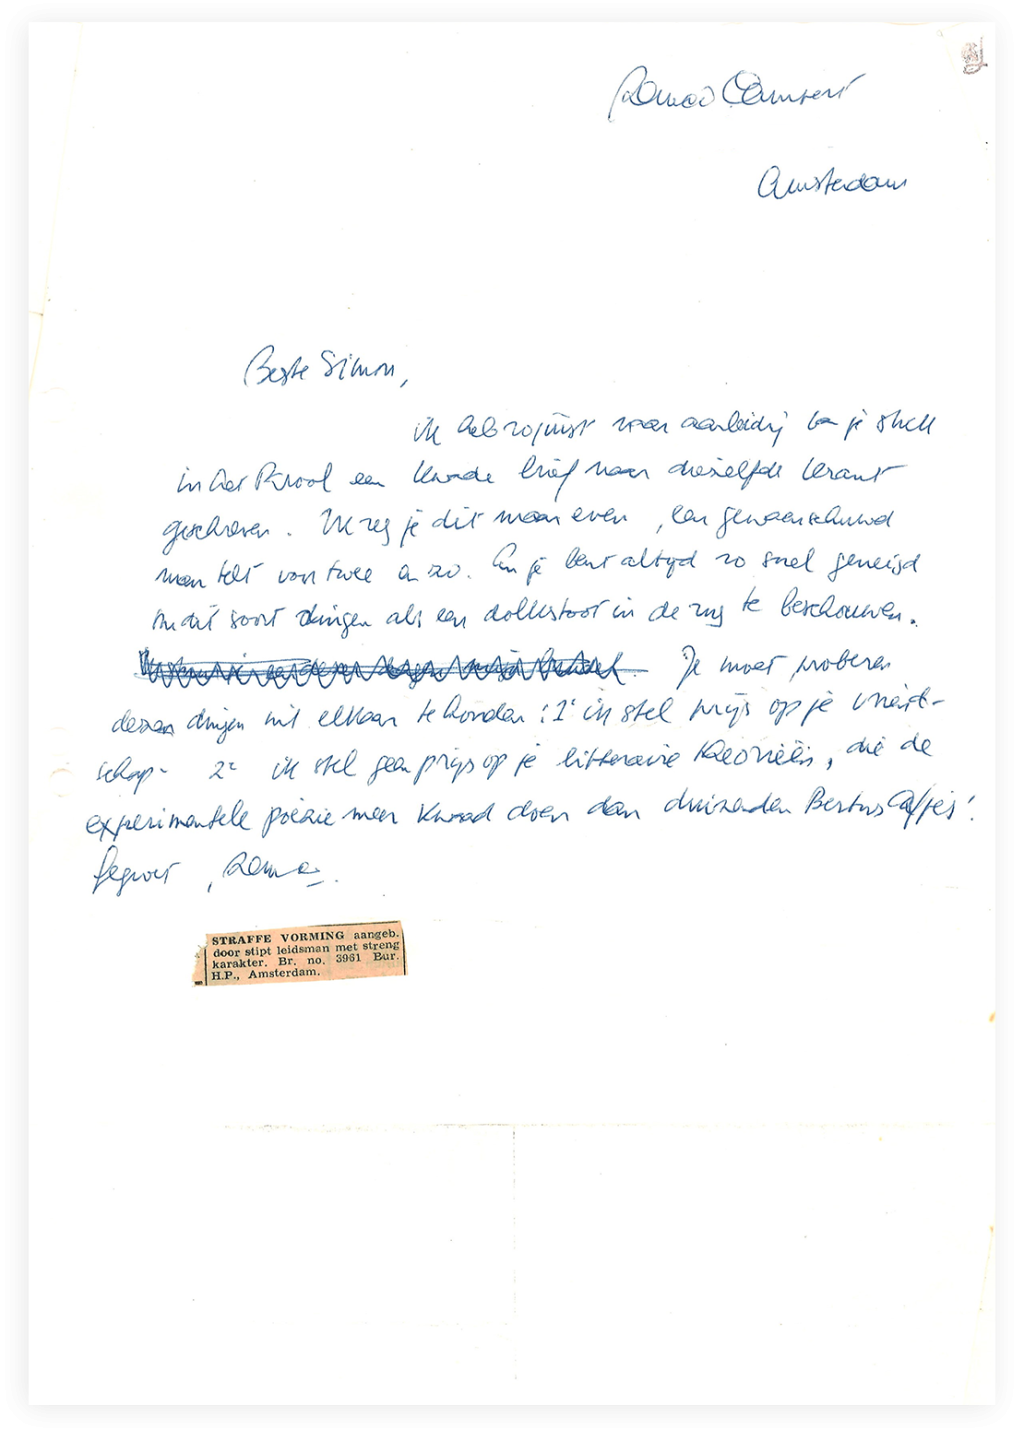 Remco Campert
Amsterdam
Beste Simon,
ik heb zojuist naar aanleiding van je stuk
in Het Parool een kwade brief naar diezelfde krant
geschreven. Ik zeg je dit maar even, een gewaarschuwd
man telt voor twee en zo. En je bent altijd zo snel geneigd
om dit soort dingen als een dolkstoot in de rug te beschouwen.
Je moet proberen
dezen dingen uit elkaar te houden: 1° ik stel prijs op je vriend-
schap - 2° ik stel geen prijs op je litteraire theorieën, die de
experimentele poëzie meer kwaad doen dan duizenden Bertus Aafjes!
gegroet, Remco.
STRAFFE VORMING aangeb.
door stipt leidsman met streng
karakter. Br. no. 3961 Bur.
H.P., Amsterdam.